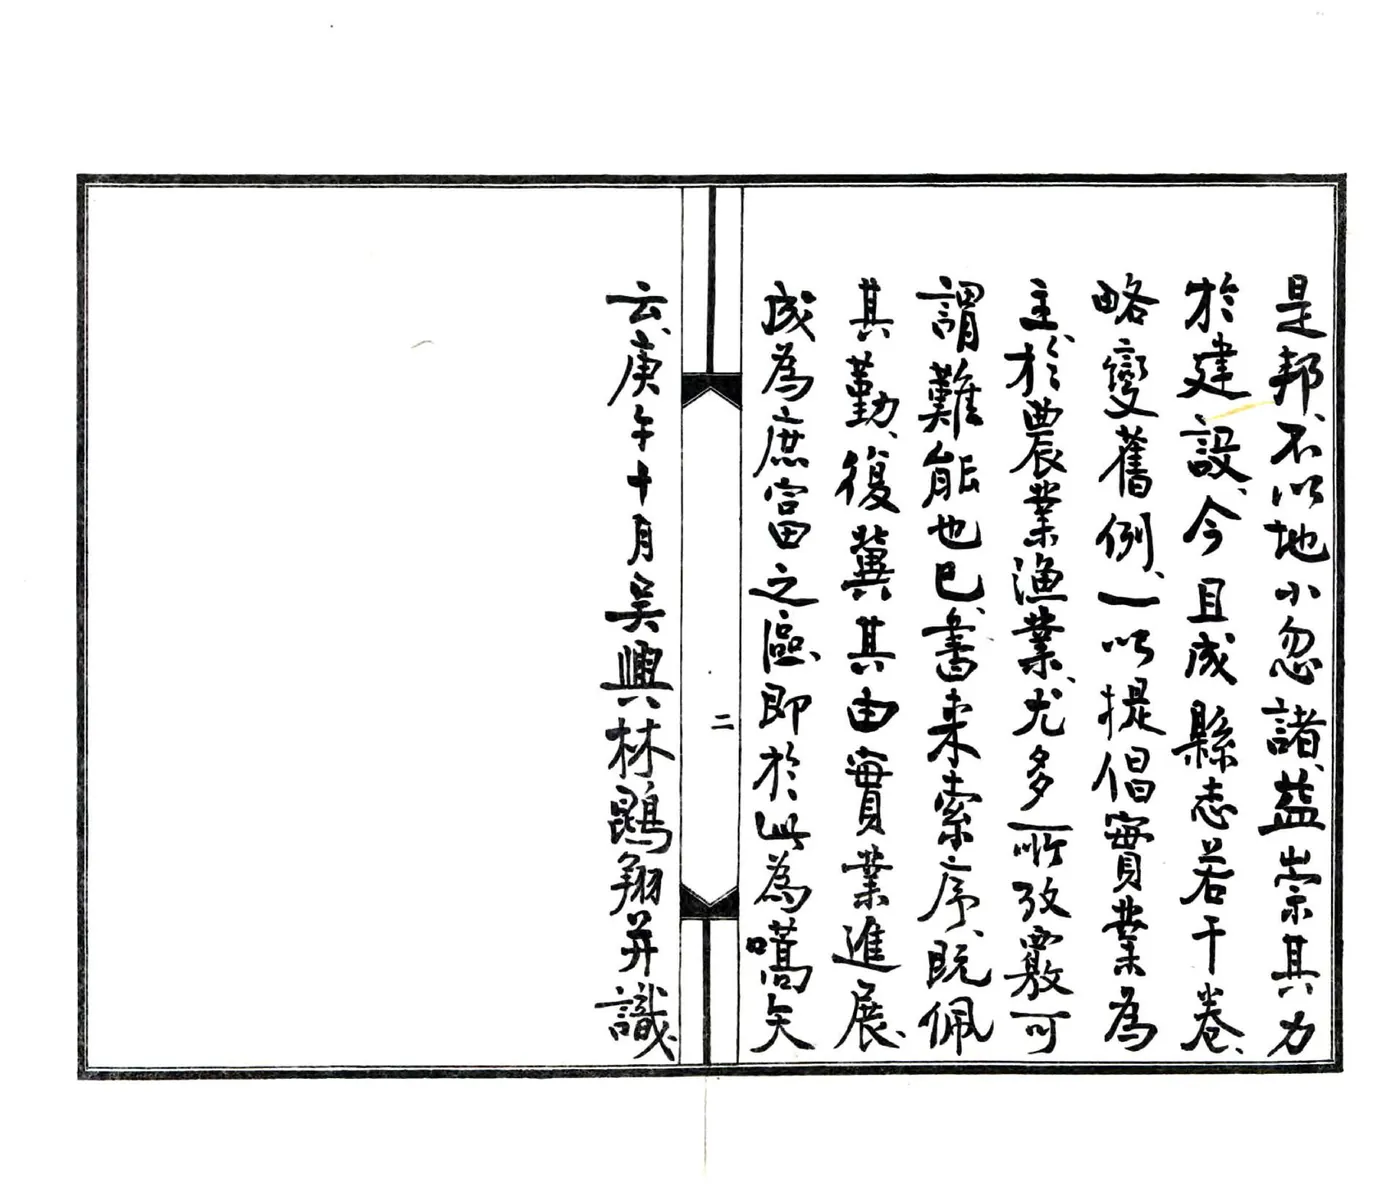 是邦、不以地小忽諸、益崇其力
於建設、今且成縣志若干卷、
略變舊例、一以提倡實業為
主、於農業漁業、尤多所攷覈可
謂難能也已、書來索序、既佩
其勤、復冀其由實業進展、
成為庶富之區、即於此為嚆矢
云、庚午十月吳興林鵾翔并識、
二